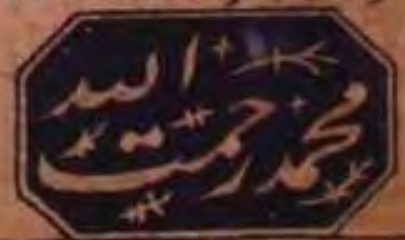 محمد رحمت اللہ